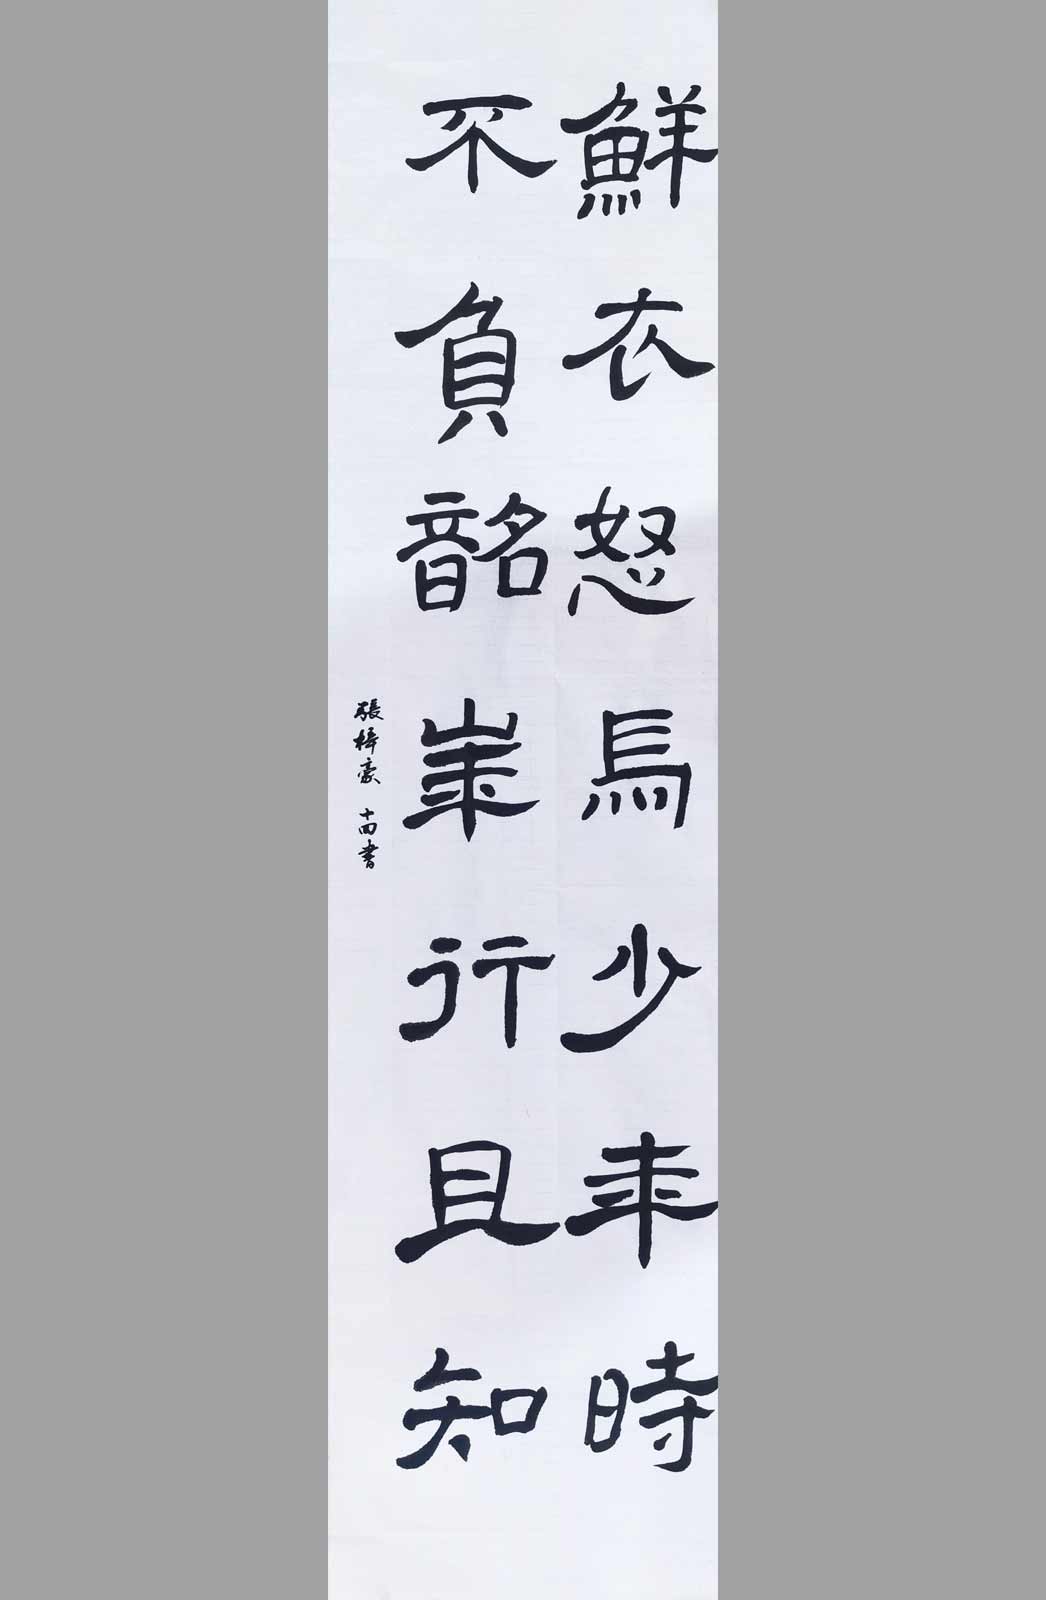 鮮衣怒馬少年時
不負韶崴行且知
張梓豪 十四書